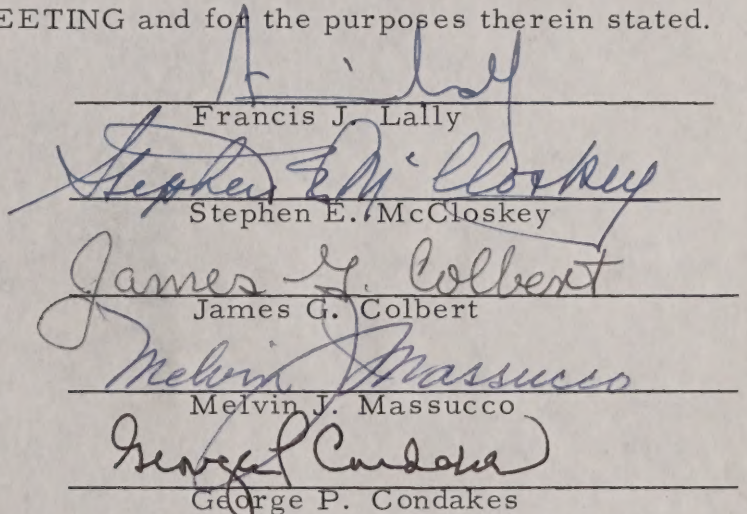 EETING and for the purposes therein stated.
Francis J. Lally
Stephen E. McCloskey
Stephen E. McCloskey
James G. Colbert
James G. Colbert
Melvin J. Massucco
Melvin J. Massucco
George P. Condakes
George P. Condakes